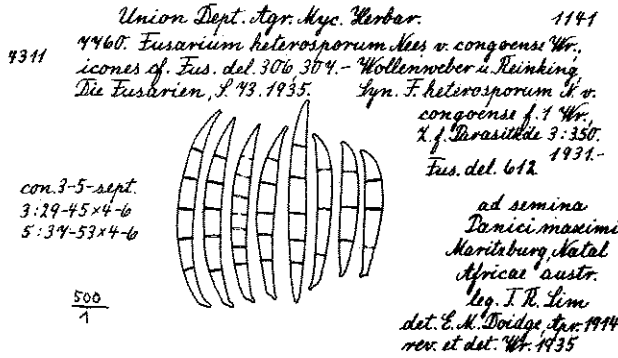 Union Dept. Agr. Myc. Herbar. 1141
4311
7760. Fusarium heterosporum Nees v. congoense Wr.,
icones cf. Fus. del. 306, 307.- Wollenweber u. Reinking,
Die Fusarien, S. 73. 1935. Syn. F. heterosporum N. v.
congoense f. 1 Wr.,
Z. f. Parasitkde 3:350.
1931.-
Fus. del. 612
con. 3-5-sept.
3:29-45×4-6
5:37-53×4-6
500
1
ad semina
Panici maximi
Maritzburg, Natal
Africae austr.
leg. T. R. Sim
det. E. M. Doidge, Apr. 1914
rev. et det. Wr. 1935